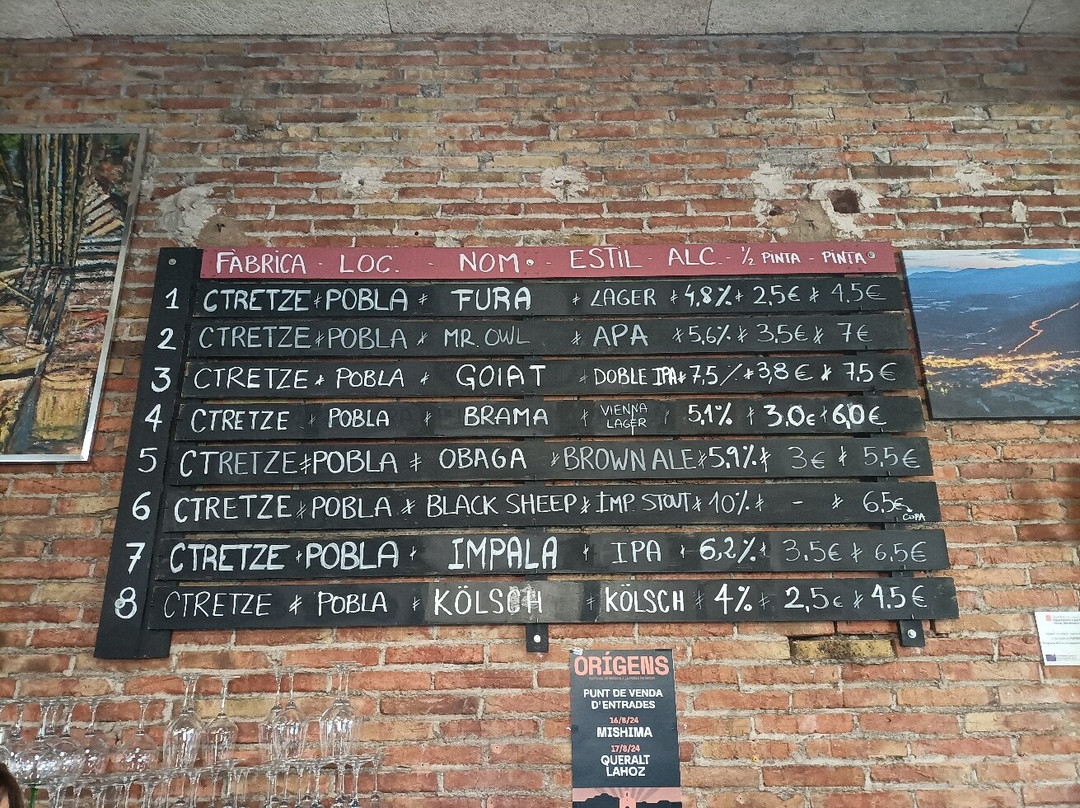 FÀBRICA - LOC. - NOM - ESTIL - ALC. - ½ PINTA - PINTA
1 CTRETZE * POBLA * FURA * LAGER * 4,8% * 2,5€ * 4.5€
2 CTRETZE * POBLA * MR. OWL * APA * 5,6% * 3.5€ * 7€
3 CTRETZE * POBLA * GOIAT * DOBLE IPA * 7,5% * 3,8€ * 7.5€
4 CTRETZE * POBLA * BRAMA * VIENNA LAGER * 5,1% * 3.0€ * 6,0€
5 CTRETZE * POBLA * OBAGA * BROWN ALE * 5,9% * 3€ * 5,5€
6 CTRETZE * POBLA * BLACK SHEEP * IMP. STOUT * 10% * - * 6,5€ COPA
7 CTRETZE * POBLA * IMPALA * IPA * 6,2% * 3.5€ * 6,5€
8 CTRETZE * POBLA * KÖLSCH * KÖLSCH * 4% * 2,5€ * 4.5€
ORÍGENS
PUNT DE VENDA
D'ENTRADES
16/8/24
MISHIMA
17/8/24
QUERALT
LAHOZ